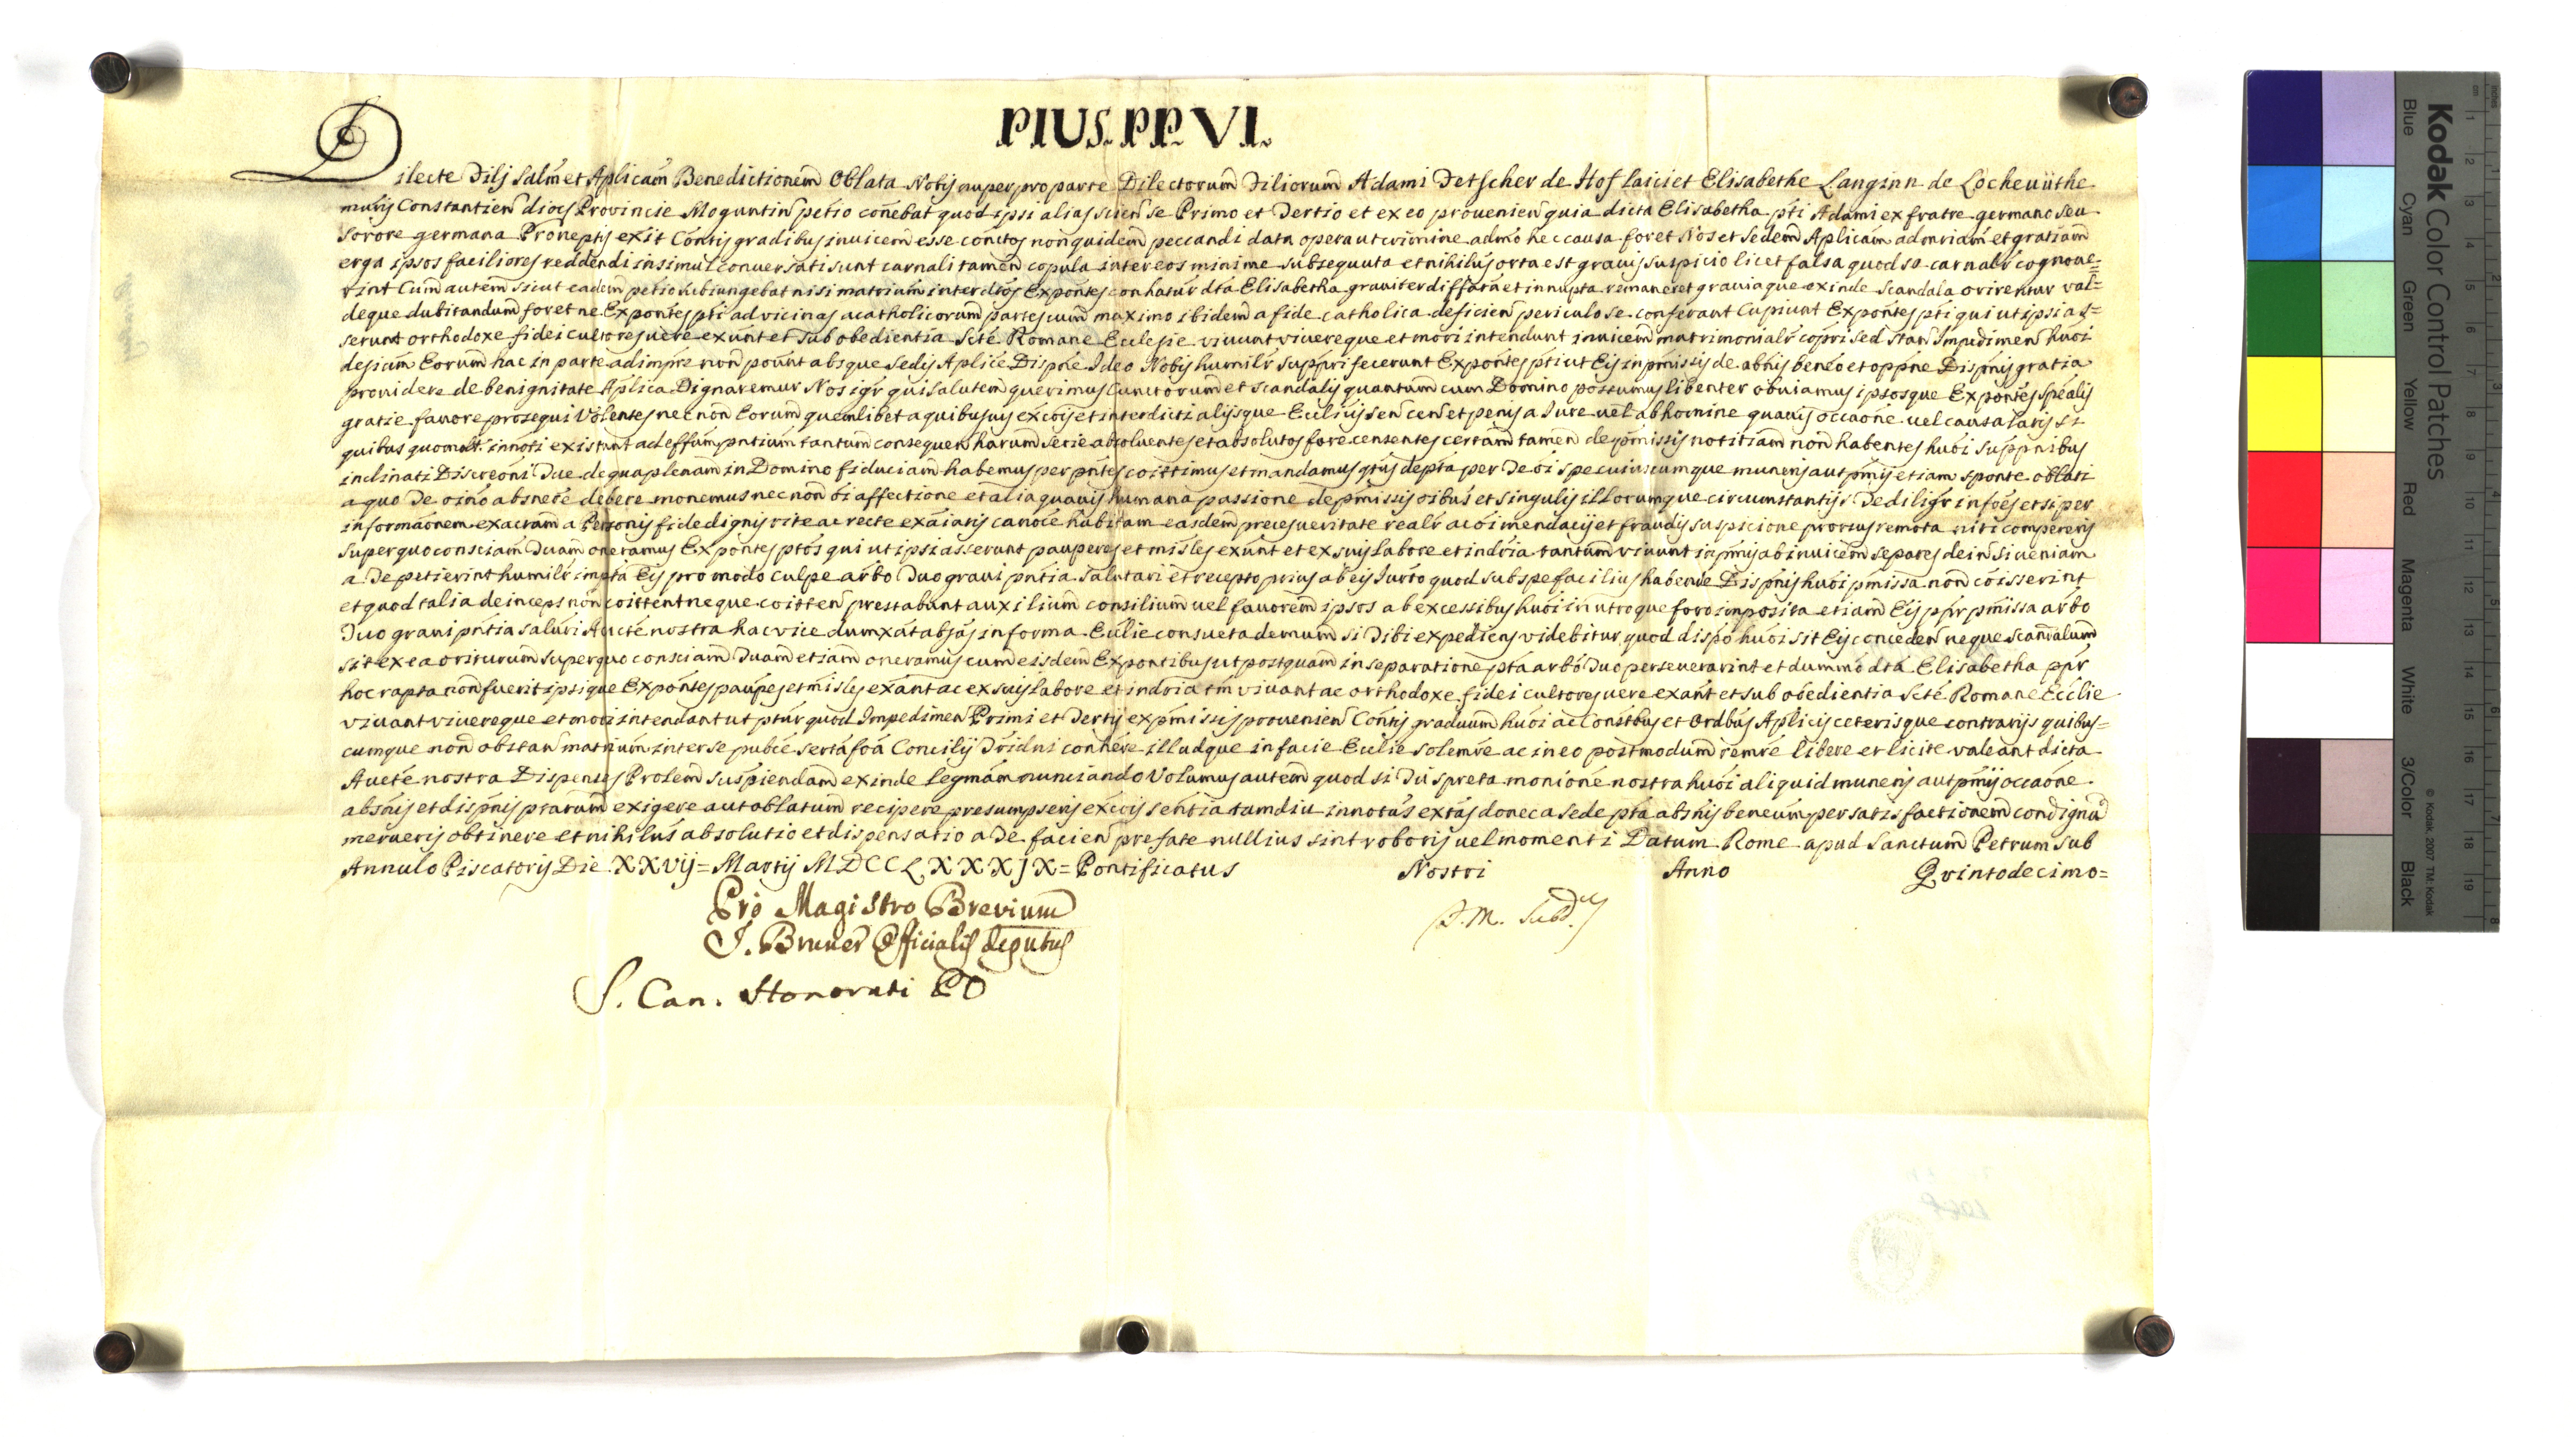 PIUS. PP. VI.
Dilecte Filij Salm̃ et Aplicam̃ Benedictionem̃ Oblata Nobis nuper pro parte Dilectorum Filiorum Adami Fetscher de Hof laici et Elisabethe Langinn de Locheuüthe
Constantien̄ dioc̄ Provincie Moguntin̄ petio cōnebat quod ipsi alias scien̄ se Primo et Tertio et ex eo prouenien̄ quia dicta Elisabetha p̄ti Adami ex fratre germano seu
sorore germana Proneptis exit Con̄tis gradibus inuicem̃ esse con̄ctos non quidem̃ peccandi data opera ut crimine admo hec causa foret Nos et Sedem̃ Aplicam̃ ad et gratiam̃
erga ipsos faciliores reddendi insimul conuersati sunt carnali tamen̄ copula inter eos minime subsequuta et nihilus̄ orta est grauis suspicio licet falsa quod se carnalr̄ cognoue=
rint Cum̄ autem̄ sicut eadem̄ petio subiungebat nisi matrium̄ inter dc̄tos Expon̄tes con̄hatur dc̄ta Elisabetha grauiter diffam̄ata et innupta remaneret grauiaque exinde Scandala orirentur val=
deque dubitandum̄ foret ne Expon̄tes p̄ti ad vicinas acatholicorum partes cum̄ maximo ibidem̄ a fide catholica deficien̄ periculo se conferant Cupiunt Expon̄tes p̄ti qui ut ipsi as=
serunt orthodoxe fidei cultores uere exūnt et sub obedientia Sc̄te Romane Ecclesie viuunt viuereque et mori intendunt inuicem̄ matrimonialr̄ cop̄ri sed Stan̄ Impedimen̄ huoi
desium Eorum hac in parte adimp̄re non poūnt absque Sedis Aplice Dispn̄e Ideo Nobis humilr̄ supp̄ri fecerunt Expon̄tes p̄ti ut Eis in p̄missis de abn̄is ben̄eo et opp̄ne Disp̄nis gratia
providere de benignitate Aplica Dignaremur Nos igr̄ qui salutem̄ querimus Cunctorum̄ et Scandalis quantum cum Domino possumus libenter obuiamus ipsosque Expon̄tes sp̄ealis
gratie fauore prosequi Volentes necnon̄ Eorum quemlibet a quibusuis excōis et interdicti alijsque Ecc̄licis sen̄ cen̄ et penis a Iure uel ab homine quauis occaōne uel causa latis si
quibus quomolt̄ innoti existunt ad effum̄ p̄ntium̄ tantum consequen̄ harum Serie absoluentes et absolutos fore censentes certam̄ tamen de p̄missis notitiam̄ non̄ habentes huoi suppn̄ibus
inclinati Discreoni Tue de qua plenam̄ in Domino fiduciam̄ habemus per p̄ntes coīttimus et mandamus q̄tus dep̄ta per Te oi spe cuiuscumque muneris aut p̄mij etiam sponte oblati
a quo Te oīno absn̄ere debere monemus necnon̄ oi affectione et alia quauis humana passione de p̄missis oībus et singulis illorumque circumstantijs Te diligr̄ infoēs et si per
informaōnem exactam̄ a Personis fide dignis rite ac recte exaīatis canōce habitam easdem̄ preces ueritate realr̄ ac oi mendacij et fraudis suspicione prorsus remota niti compereris
super quo consciam̄ Tuam oneramus Expon̄tes p̄tos qui ut ipsi asserunt pauperes et mis̄les exūnt et ex suis labore et indr̄ia tantum̄ viuunt ab inuicem̄ separes dein̄ si ueniam
a Te petierint humilr̄ imp̄ta Eis pro modo culpe arb̄o Tuo graui p̄ntia Salutari et recepto prius ab eis Iurt̄o quod sub spe facilius habende Disp̄nis huoi p̄missa non̄ coīsserint
et quod talia deinceps non̄ coīttent neque coītten̄ prestabunt auxilium consilium̄ uel fauorem̄ ipsos ab excessibus huoi in utroque foro imposita etiam̄ Eis p̄p̄r p̄missa arb̄o
Tuo graui p̄ntia saluri Aucte nostra hac vice dumxat absas in forma Ecc̄lie consueta demum̄ si Tibi expediens videbitur quod dispo huoi sit Eis conceden̄ neque scan̄alum̄
sit ex ea oriturum̄ super quo consciam̄ Tuam̄ etiam̄ oneramus cum̄ eisdem̄ Expon̄tibus ut postquam̄ in separatione p̄ta arb̄o Tuo perseuerarint et dummo dc̄ta Elisabetha p̄p̄r
hoc rapta non̄ fuerit ipsique Expon̄tes paup̄es et mis̄les exānt ac ex suis labore et indr̄ia tm̄ viuant ac orthodoxe fidei cultores uere exānt et sub obedientia Sc̄te Romane Ecc̄lie
viuant viuereque et mori intendant ut p̄tur quod Impedimen̄ Primi et Tertij ex p̄missis prouenien̄ Con̄tis graduum huoi ac Con̄stbus et Ordbus Aplicis ceterisque contrarijs quibus=
cumque non̄ obstan̄ matrium̄ inter se pubce serta foā Concilij Tridni con̄here illudque in facie Ecc̄lie solemre ac in eo postmodum̄ remre libere et licite valeant dicta
Aucte nostra Dispenses Prolem̄ suspiendam̄ exinde legmam̄ nunciando Volumus autem̄ quod si Tu spreta monione nostra huoi aliquid muneris aut p̄mij occaōne
absn̄is et disp̄nis p̄tarum̄ exigere aut oblatum recipere presumpseris excois sen̄tia tamdiu innotus extas donec a Sede p̄ta absn̄is beneum per satisfactionem̄ condignā
merueris obtinere et nihilus̄ absolutio et dispensatio a Te facien̄ prefate nullius sint roboris uel momenti Datum Rome apud Sanctum̄ Petrum Sub
Annulo Piscatoris Die XXVIj= Martij MDCCLXXXJX= Pontificatus Nostri Anno Qvintodecimo=
Pro Magistro Brevium
J. Bruner Officialis deputus
S. Can. Honorati PO